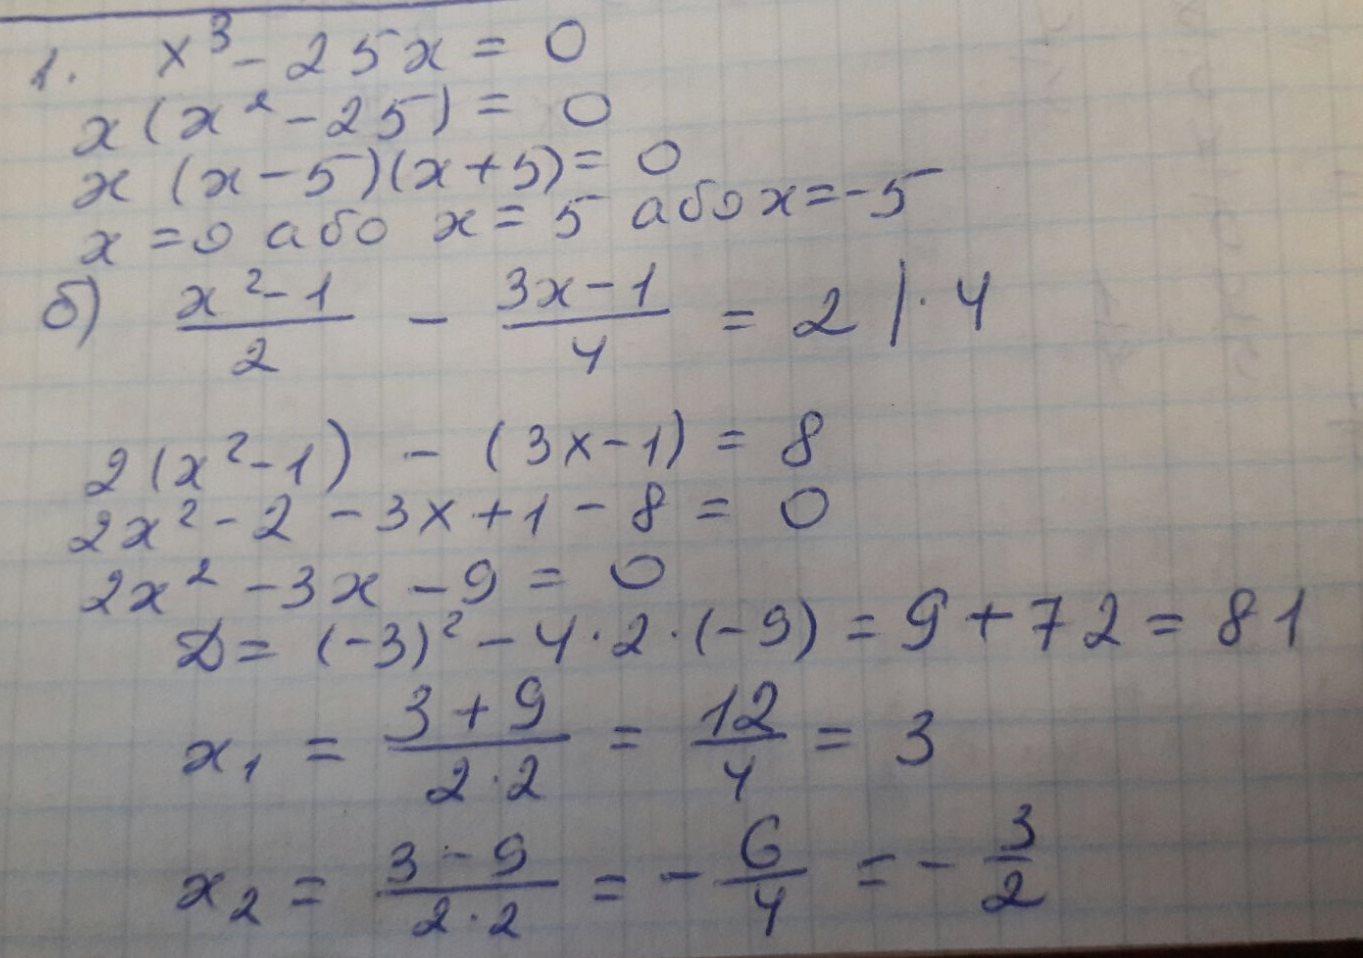 1. x³ - 25x = 0
x(x² - 25) = 0
x(x - 5)(x + 5) = 0
x = 0 або x = 5 або x = -5
б) (x² - 1)/2 - (3x - 1)/4 = 2 | · 4
2(x² - 1) - (3x - 1) = 8
2x² - 2 - 3x + 1 - 8 = 0
2x² - 3x - 9 = 0
D = (-3)² - 4 · 2 · (-9) = 9 + 72 = 81
x₁ = (3 + 9)/(2 · 2) = 12/4 = 3
x₂ = (3 - 9)/(2 · 2) = - 6/4 = - 3/2